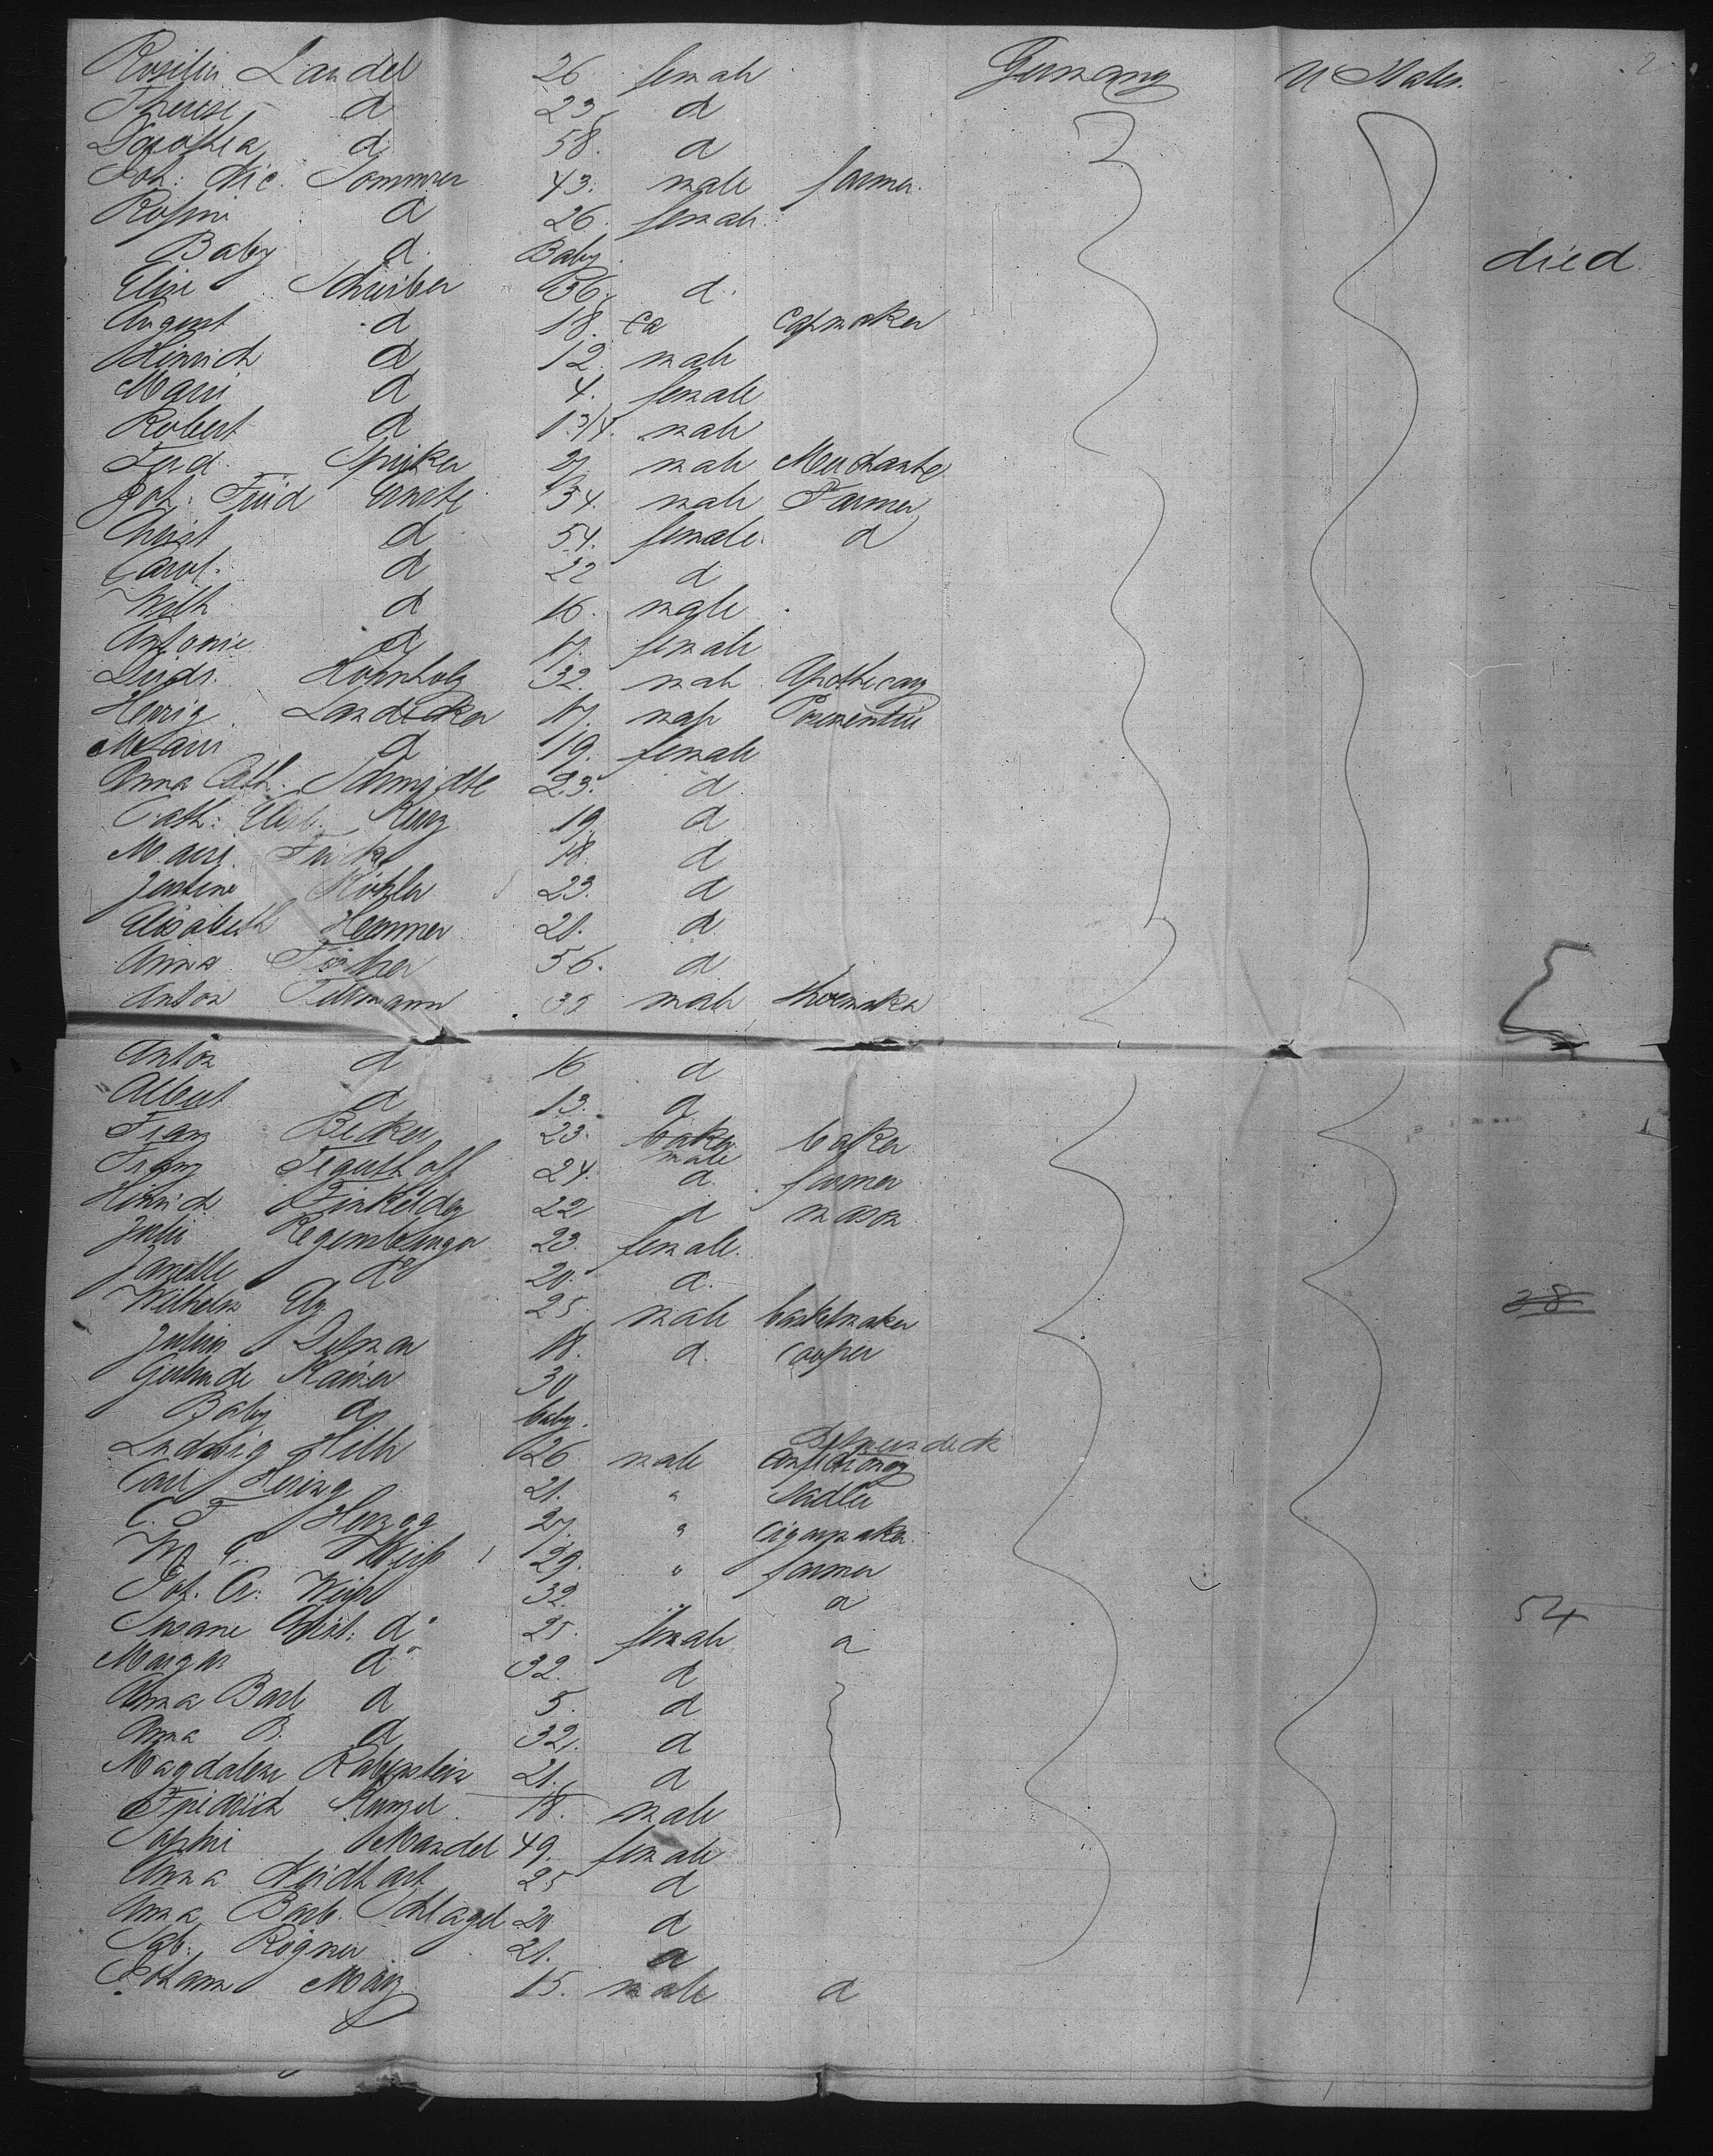 2
Rosilie Landel 26 female Germany U States.
Therese d 23, d
Dorothea d 58. d
Joh: Nic. Sommer 43. male farmer.
Rosine d 26. female
Baby d. Baby. died.
Elise Schreiber 36, d.
August d 18. capmaker
Hinrich d 12. male
Marie d 4. female
Robert d 1 3/4. male
Ferd. Spieker 27. male Merchante
Joh: Fried Ernste 54. male Farmer
Christ d 54. female d
Carol. d 22 d
Wilh d 16. male
Antonie d 17. female
Diedr. Hohnholz 32. male Apothecary
Herrig Landecker 17. male
Marie d 19. female
Anna Cath. Schmidte 23. d
Cath: Elisb. Kurz 19. d
Marie Fricke 18. d
Justine Köhler 23. d
Elisabeth Hemmer 21. d
Anna Fischer 56. d
Anton Tillmann 32 male shoemaker
Anton d 16 d
Albert d 13. d
Franz Becker 23. baker male baker
Franz Tegethoff 24. d farmer
Hinrich Finkeldey 22 d mason
Julie Regensburger 23. female.
Janette do 20. d.
Wilhelm Ely 25 male basketmaker 38
Julius Detmar 18. d. cooper
Gertrude Kaiser 30
Baby d baby.
Betweendeck
Ludwig Hille 26 male confectionary
Carl Hering 21. " Sadler
C. F. Herzog 27. " cigarmaker
W. C. Weiß 29. " farmer
Joh. A: Weiß 32. " d 54
Susane Christ: do 25. female d
Margar do 32. d
Anna Barb d 5. d
Anna B. d 32. d
Magdalene Rabenstein 21. d
Friedrich Kunzel 18. male
Sophie Mandel 49. female
Anna Neidhart 25 d
Anna Barb. Schlagel 20 d
Sab: Rögner 21. d
Johann März 15. male d